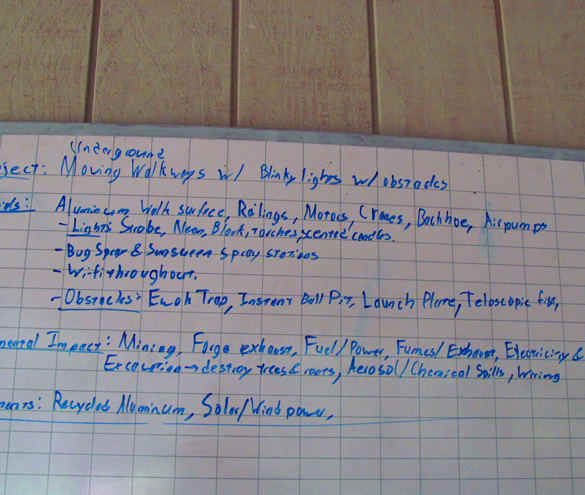 Underground
ject: Moving Walkways w/ Blinky lights w/ obstacles
ls: Aluminum Walk surface, Railings, Motors, Cranes, Backhoe, Air pumps
- Lights: Strobe, Neon, Black, torches, scented candles.
- Bug Spray & Sunscreen Spray stations
- Wifi throughout.
- Obstacles: Ewok Trap, Instant Ball Pit, Launch Plate, Teloscopic fist,
mental Impact: Mining, Forge exhaust, Fuel/Power, Fumes/Exhaust, Electricity &
Excavation → destroy trees & roots, Aerosol/Chemical Spills, Wiring
ments: Recycled Aluminum, Solar/Wind power,